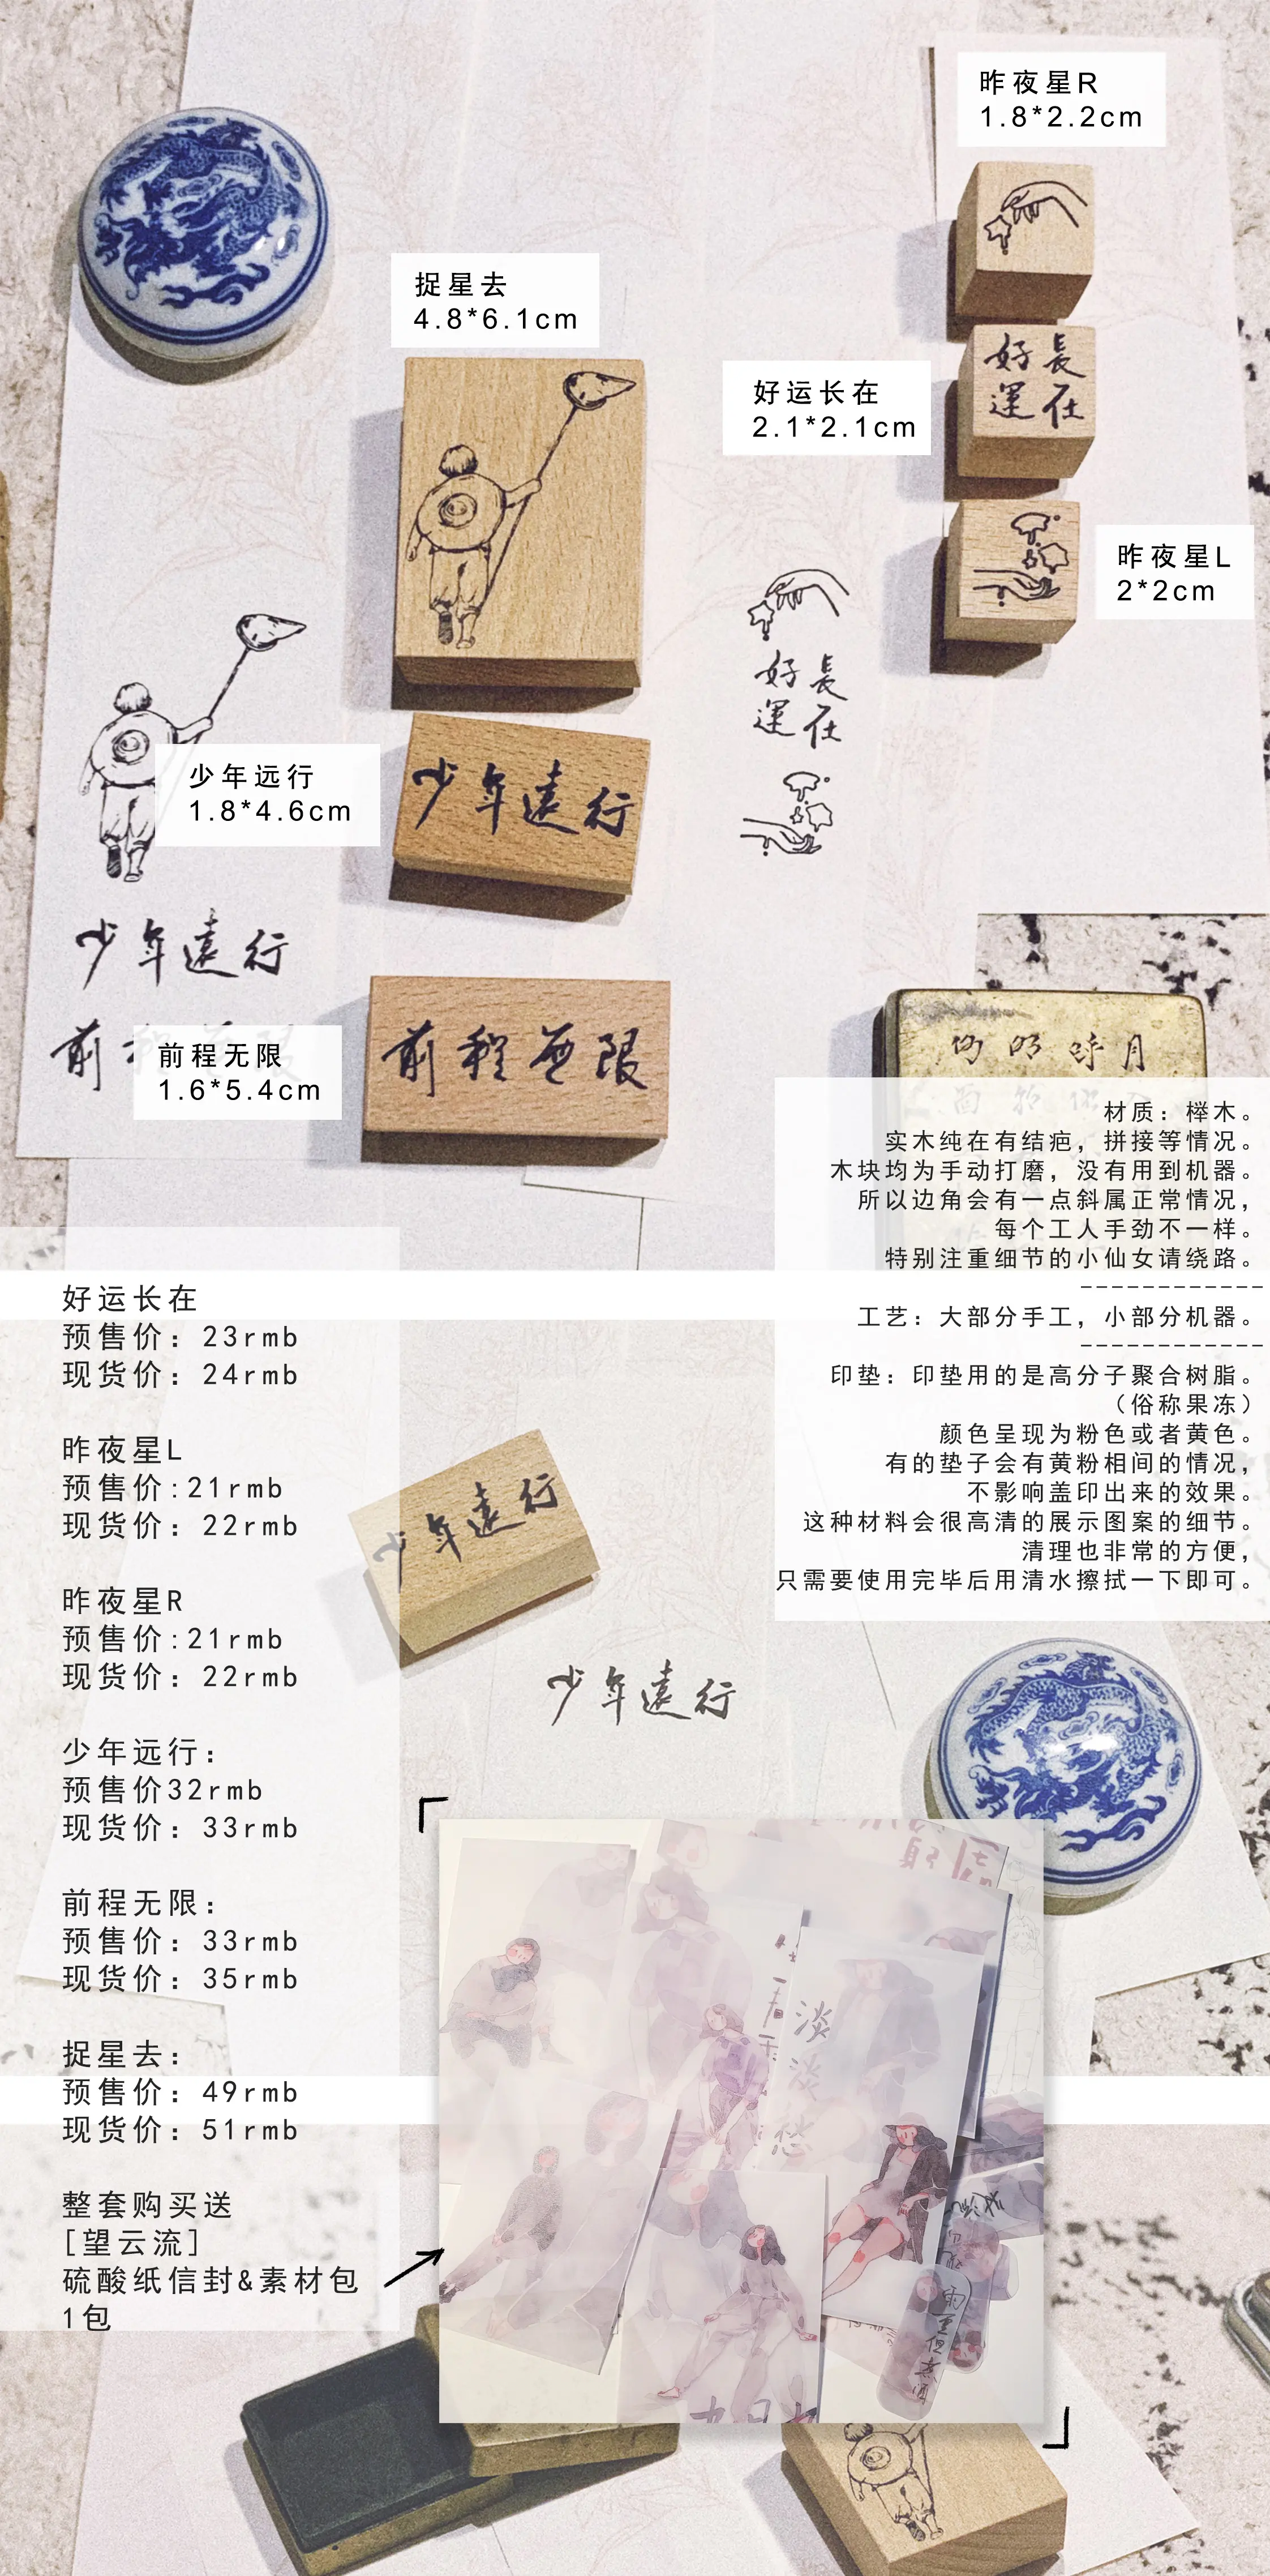 昨夜星R
1.8*2.2cm
捉星去
4.8*6.1cm
好運
長在
好运长在
2.1*2.1cm
昨夜星L
2*2cm
好運
長在
少年远行
1.8*4.6cm
少年遠行
少年遠行
前程无限
1.6*5.4cm
前程無限
前
材质：榉木。
实木纯在有结疤，拼接等情况。
木块均为手动打磨，没有用到机器。
所以边角会有一点斜属正常情况，
每个工人手劲不一样。
特别注重细节的小仙女请绕路。
-------------
工艺：大部分手工，小部分机器。
-------------
印垫：印垫用的是高分子聚合树脂。
（俗称果冻）
颜色呈现为粉色或者黄色。
有的垫子会有黄粉相间的情况，
不影响盖印出来的效果。
这种材料会很高清的展示图案的细节。
清理也非常的方便，
只需要使用完毕后用清水擦拭一下即可。
好运长在
预售价：23rmb
现货价：24rmb
昨夜星L
预售价:21rmb
现货价：22rmb
昨夜星R
预售价:21rmb
现货价：22rmb
少年远行：
预售价32rmb
现货价：33rmb
前程无限：
预售价：33rmb
现货价：35rmb
捉星去：
预售价：49rmb
现货价：51rmb
整套购买送
[望云流]
硫酸纸信封&素材包
1包
少年遠行
少年遠行
淡淡愁